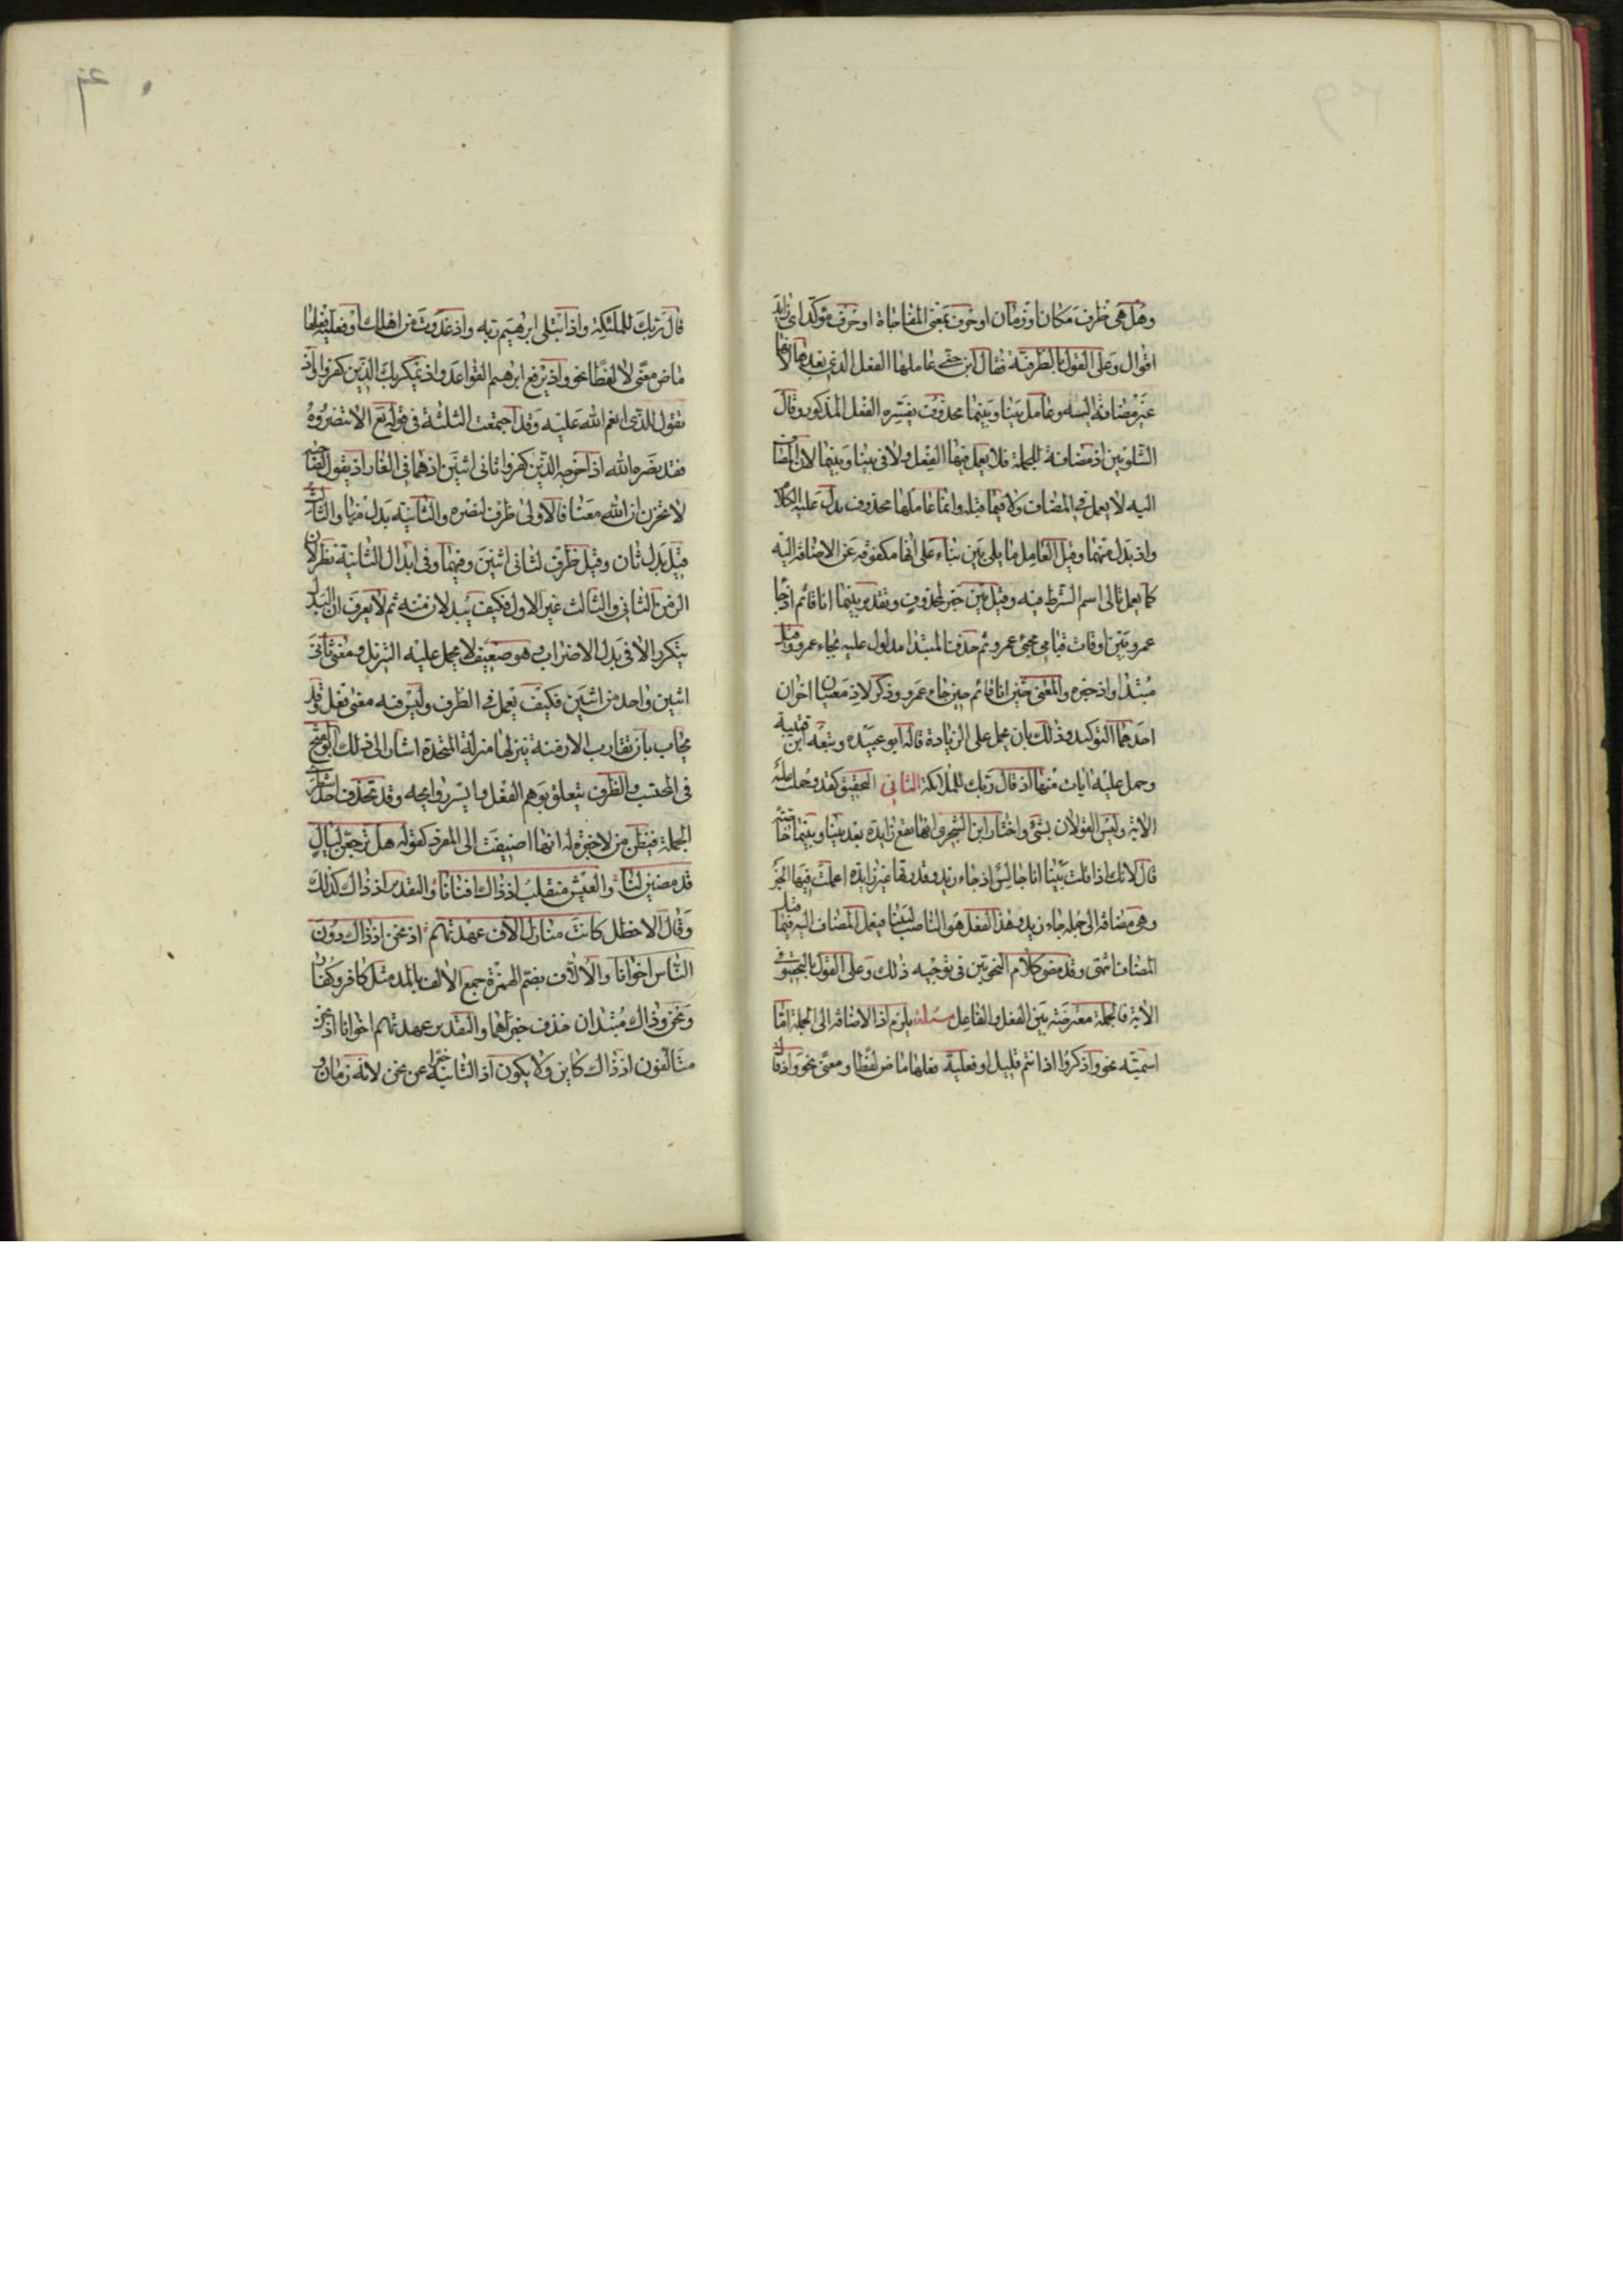 وهل هي ظرف مكان او زمان او حرف بمعنى المفاجاة او حرف موكد اى زايد
اقوال وعلى القول بالظرفية فقال ابن جنى عاملها الفعل الذى بعدها لانها
غير مضافة اليه وعامل بينا وبينما محذوف يفسره الفعل المذكور وقال
الشلوبين اذ مضافة للجملة فلا يعمل فيها الفعل ولا فى بينا وبينما لان المضاف
اليه لا يعمل فى المضاف ولا فيما قبله وانما عاملها محذوف يدل عليه الكلام
واذ بدل منهما وقيل العامل ما يلى بين بناء على انها مكفوفة عن الاضافة اليه
كما يعمل تالى اسم الشرط فيه وقيل بين خبر لمحذوف وتقدير بينما انا قائم اذ جا
عمرو بين اوقات قيامى مجئ عمرو ثم حذف المبتدا مدلول عليه بجاء عمرو وقيل
مبتدا واذ خبره والمعنى حين انا قائم حين جاء عمرو وذكر لاذ معنيان اخران
احدهما التوكيد وذلك بان يحمل على الزيادة قاله ابو عبيده وتبعه ابن قتيبة
وحمل عليه ايات منها اذ قال ربك للملائكة الثانى التحقيق كقد وحملت عليه
الاية وليس القولان بشئ واختار ابن الشجرى انها تقع زايدة بعد بينا وبينما خاصة
قال لانك اذا قلت بينا انا جالس اذ جاء زيد فقدرتها غير زايدة اعملت فيها الخبر
وهى مضافة الى جملة جاء زيد وهذا الفعل هو الناصب لبينا فيعمل المضاف اليه فيما قبل
المضاف انتهى وقد مضى كلام النحويين فى توجيه ذلك وعلى القول بالتحقيق فى
الاية فالجملة معترضة بين الفعل والفاعل مسئلة يلزم اذ الاضافة الى الجملة اما
اسمية نحو واذكروا اذ انتم قليل او فعلية فعلها ماض لفظا ومعنى نحو واذ قال
قال ربك للملئكة واذ ابتلى ابرهيم ربه واذ غدوت من اهلك او فعلية فعلها
ماض معنى لا لفظا نحو واذ يرفع ابرهيم القواعد واذ يمكر بك الذين كفروا واذ
تقول للذى انعم الله عليه وقد اجتمعت الثلثة فى قوله تع الا تنصروه
فقد نصره الله اذ اخرجه الذين كفروا ثانى اثنين اذ هما فى الغار اذ يقول لصاحبه
لا تحزن ان الله معنا فالاولى ظرف لنصره والثانية بدل منها والثالثة
قيل بدل ثان وقيل ظرف لثانى اثنين وفيهما وفى ابدال الثانية نظر لان
الزمن الثانى والثالث غير الاول فكيف يبدلان منه ثم لا يعرف ان البدل
يتكرر الا فى بدل الاضراب وهو ضعيف لا يحمل عليه التنزيل ومعنى ثانى
اثنين واحد من اثنين فكيف يعمل فى الظرف وليس فيه معنى فعل وقد
يجاب بان تقارب الازمنة ينزلها منزلة المتحدة اشار الى ذلك ابو الفتح
فى المحتسب والظرف يتعلق بوهم الفعل وايسر روايحه وقد تحذف احد شطرى
الجملة فيظن من لا خبرة له انها اضيفت الى المفرد كقوله هل ترجعن ليال
قد مضين لنا والعيش منقلب اذ ذاك افنانا والتقدير اذ ذاك كذلك
وقال الاخطل كانت منازل الاف عهدتهم اذ نحن اذ ذاك دون
الناس اخوانا والالاف بضم الهمزة جمع الالف بالمد مثل كافر وكفار
ونحن وذاك مبتدان حذف خبراهما والتقدير عهدتهم اخوانا اذ نحن
متالفون اذ ذاك كاين ولا يكون اذ الثانية خبرا عن نحن لانه زمان و